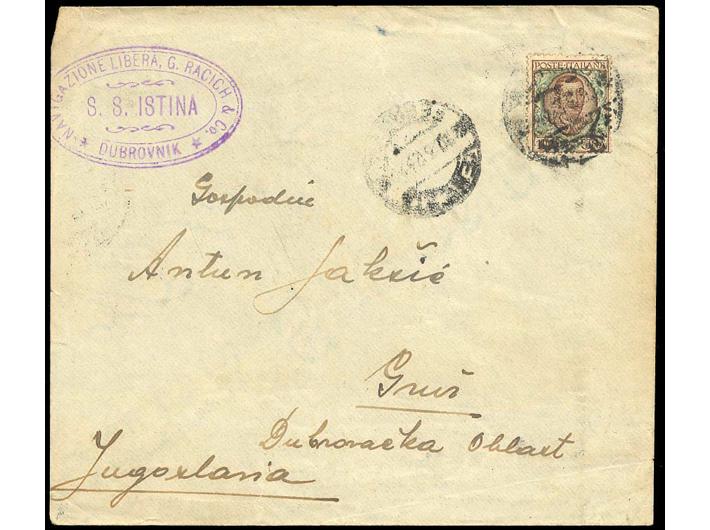 NAVIGAZIONE LIBERA, G. RACICH & Co.
S. S. ISTINA
★ DUBROVNIK ★
POSTE ITALIANE
Gospodin
Antun Jakšić
Gruž
Dubrovačka Oblast
Jugoslavia